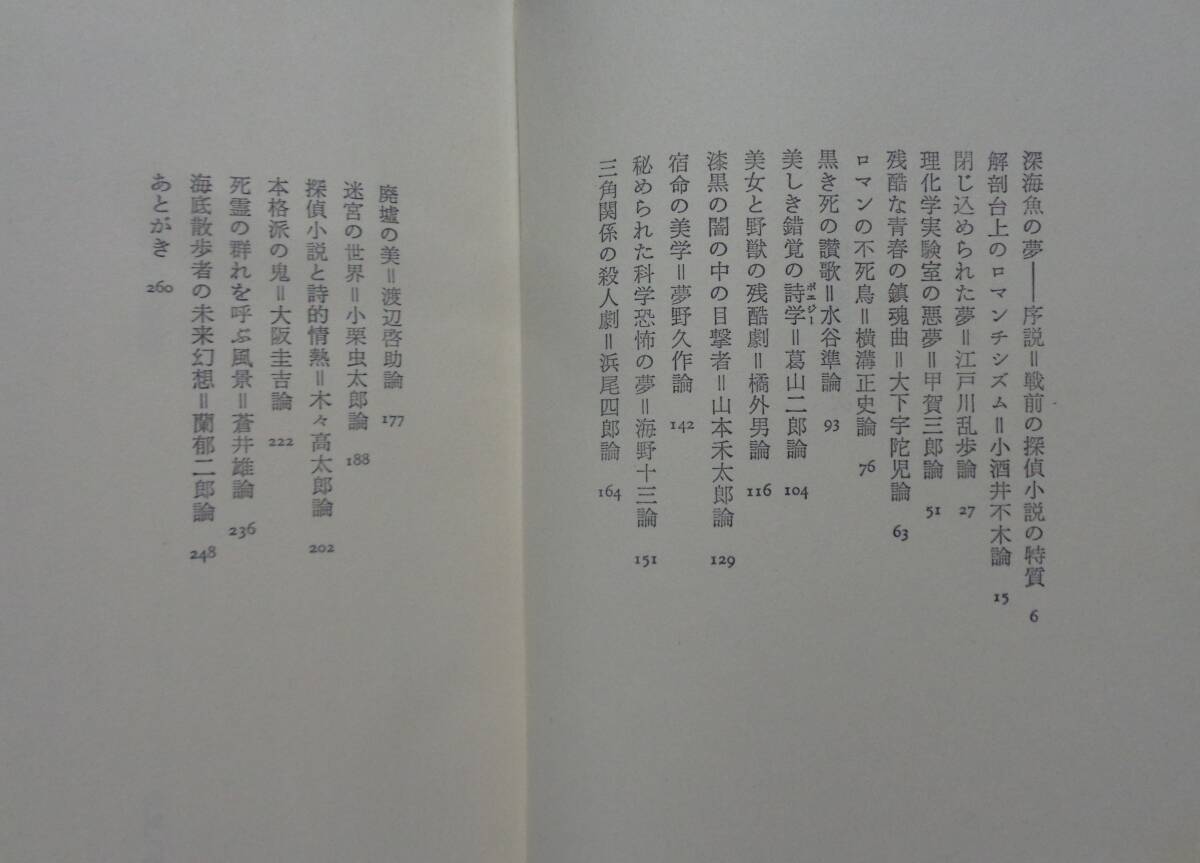 深海魚の夢――序説＝戦前の探偵小説の特質 6
解剖台上のロマンチシズム＝小酒井不木論 15
閉じ込められた夢＝江戸川乱歩論 27
理化学実験室の悪夢＝甲賀三郎論 51
残酷な青春の鎮魂曲＝大下宇陀児論 63
ロマンの不死鳥＝横溝正史論 76
黒き死の讃歌＝水谷準論 93
美しき錯覚の詩学（ポエジー）＝葛山二郎論 104
美女と野獣の残酷劇＝橘外男論 116
漆黒の闇の中の目撃者＝山本禾太郎論 129
宿命の美学＝夢野久作論 142
秘められた科学恐怖の夢＝海野十三論 151
三角関係の殺人劇＝浜尾四郎論 164
廃墟の美＝渡辺啓助論 177
迷宮の世界＝小栗虫太郎論 188
探偵小説と詩的情熱＝木々高太郎論 202
本格派の鬼＝大阪圭吉論 222
死霊の群れを呼ぶ風景＝蒼井雄論 236
海底散歩者の未来幻想＝蘭郁二郎論 248
あとがき 260